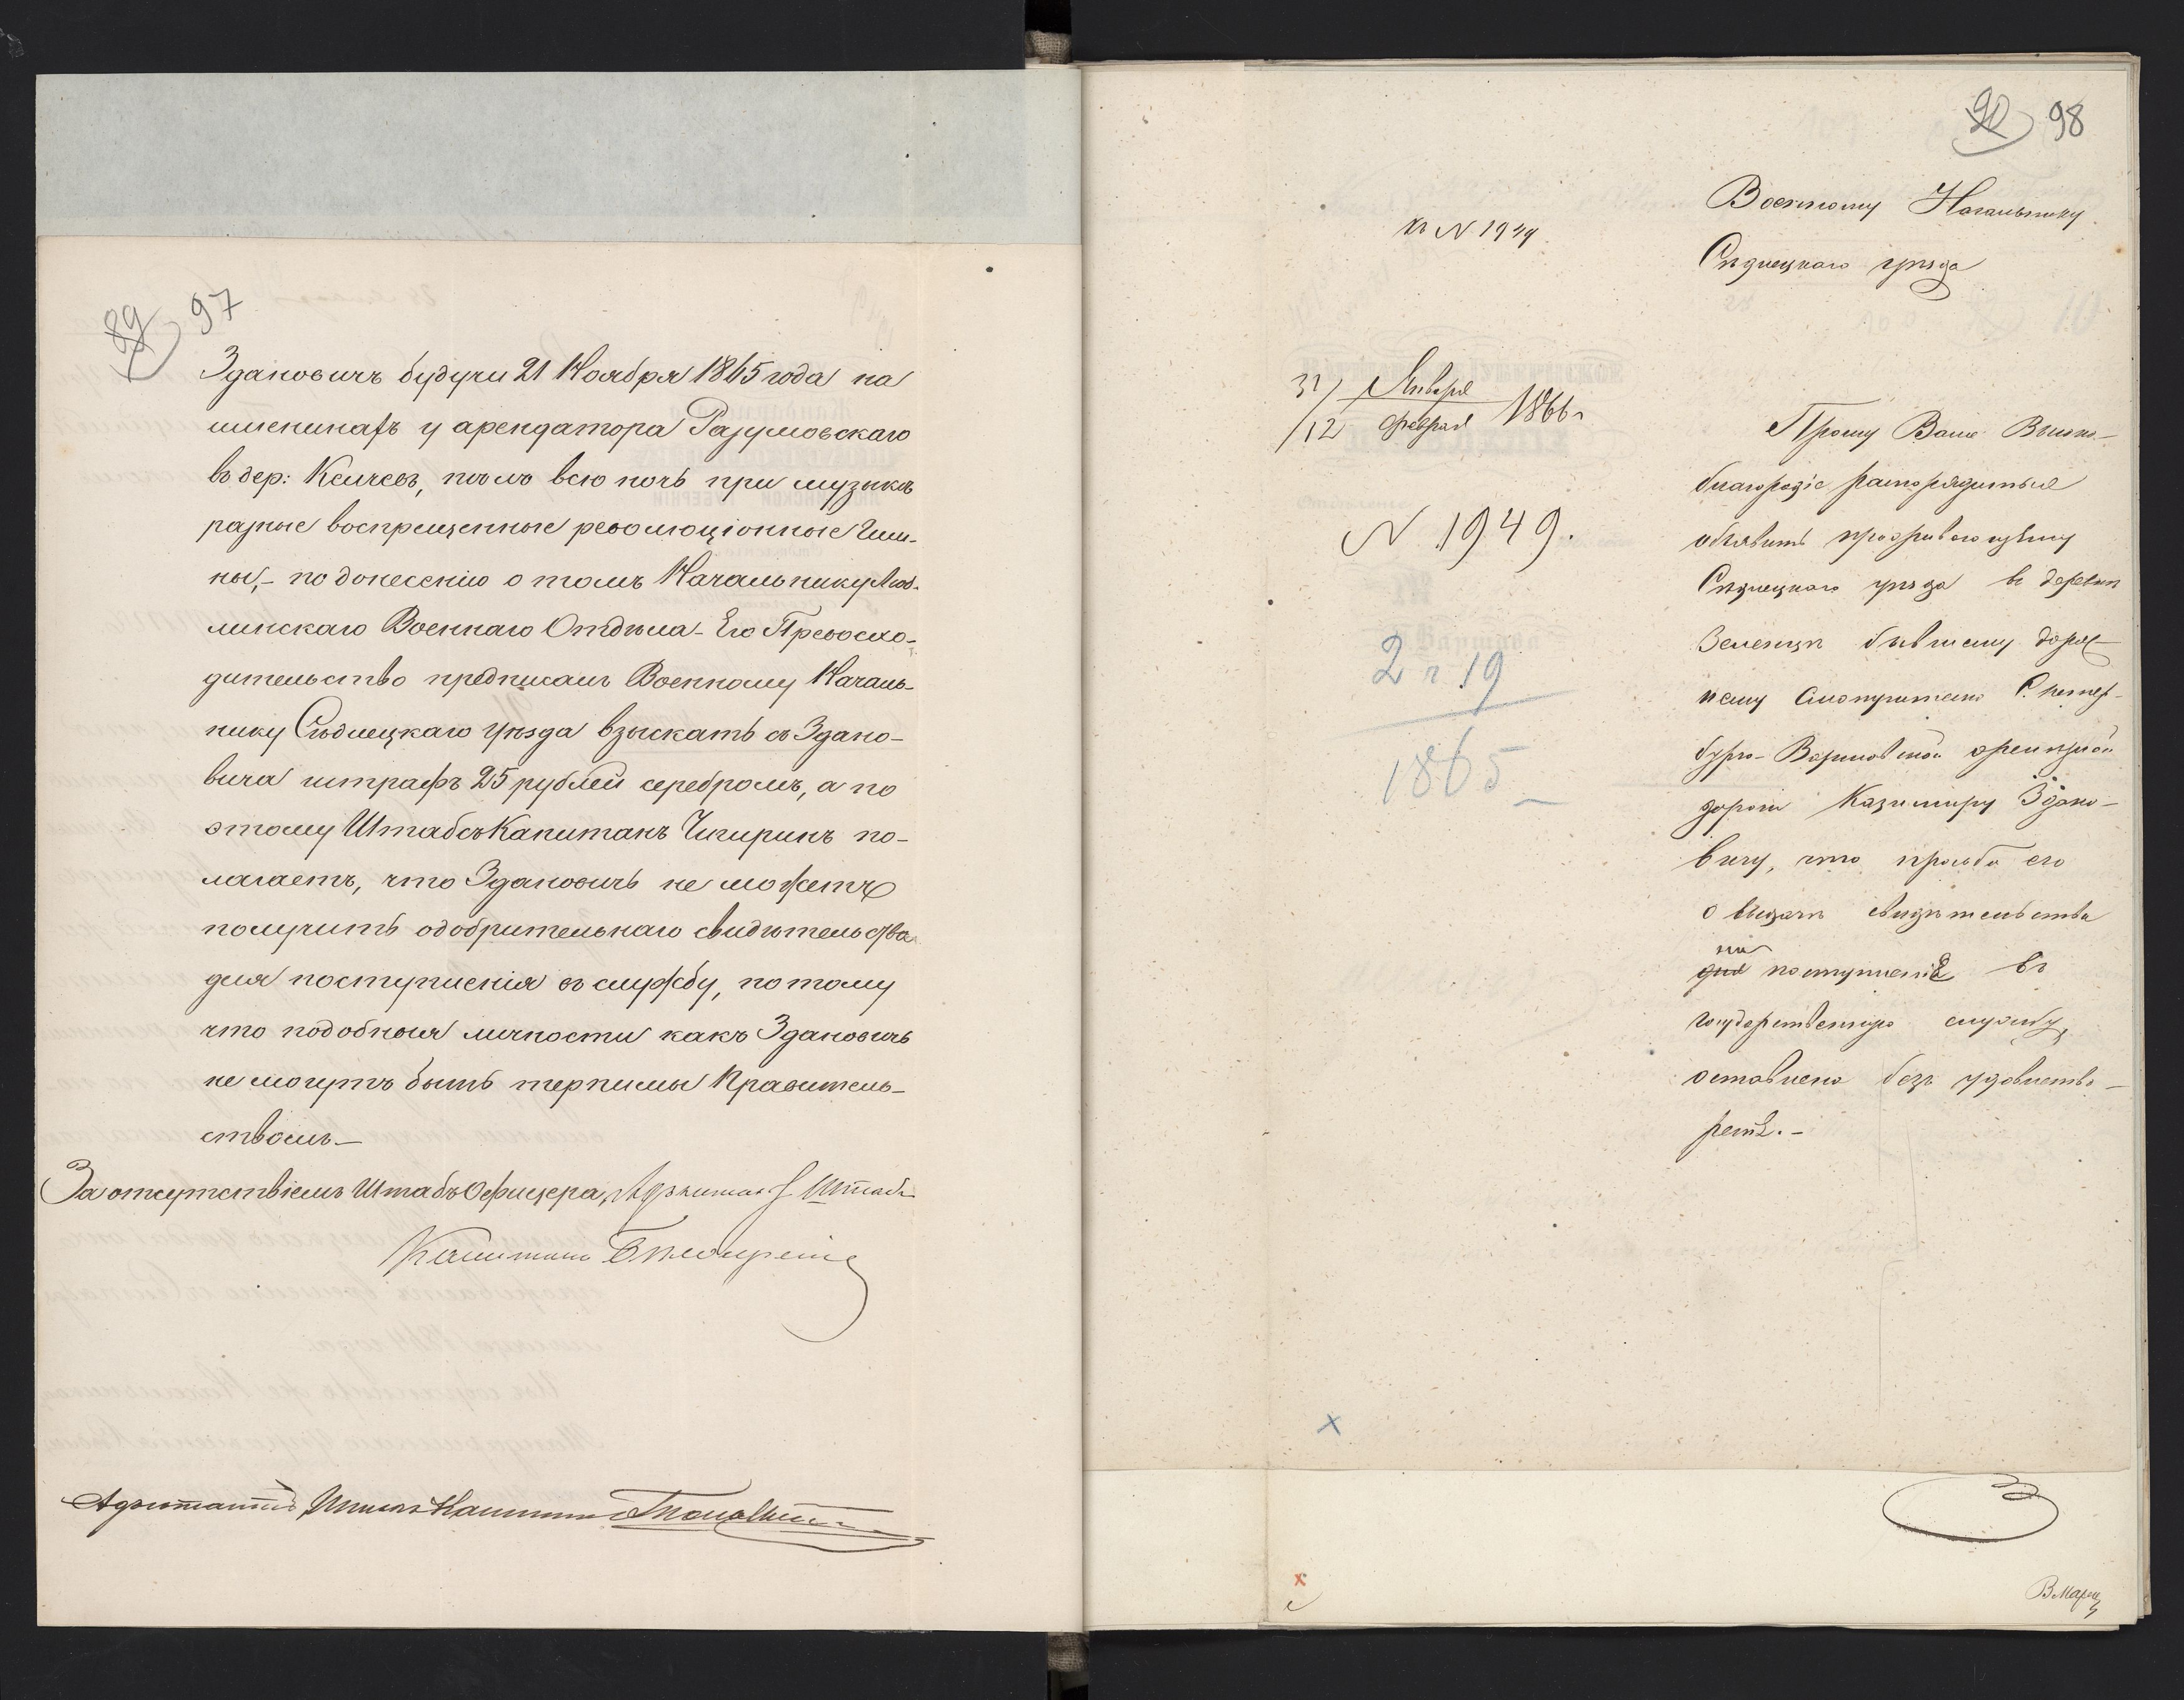 89 97
Здановичъ будучи 21 Ноября 1865 года на
имениныхъ у арендатора Разумовскаго
въ дер: пѣлъ всю ночь при музыкѣ
разные воспрещенные революціонные Гим-
ны,- по донесенію о томъ Начальнику Люб-
линскаго Военнаго Отдѣла - Его Превосхо-
дительство предписалъ Военному Началь-
нику Сѣдлецкаго уѣзда взыскать съ Здано-
вича штрафъ 25 рублей серебромъ, а по
этому Штабсъ Капитанъ Чигиринъ по-
лагаетъ, что Здановичъ не можетъ
получить одобрительнаго свидѣтельства
для поступленія въ службу, потому
что подобныя личности какъ Здановичъ
не могутъ быть терпимы Правитель-
ствомъ.-
За отсутствіемъ Штабъ Офицера, Адъютантъ Штабсъ
Капитанъ
Адъютантъ Штабсъ Капитанъ
90 98
Военному Начальнику
Сѣдлецкаго уѣзда
къ N 1949
31/12 Января/Февраля 1866 г
N 1949.
2 г 19
1865
Прошу Ваше Высоко-
благородіе распорядиться
объявить проживающему
Сѣдлецкаго уѣзда въ деревни
бывшему дорож-
нему смотрителю С. петер-
бурго-Варшавской желѣзной
дороги Казимиру Здано-
вичу, что просьба его
о выдачи свидѣтельства
на
для поступленіе въ
государственную службу,
оставлена безъ удовлетво-
ренія.-